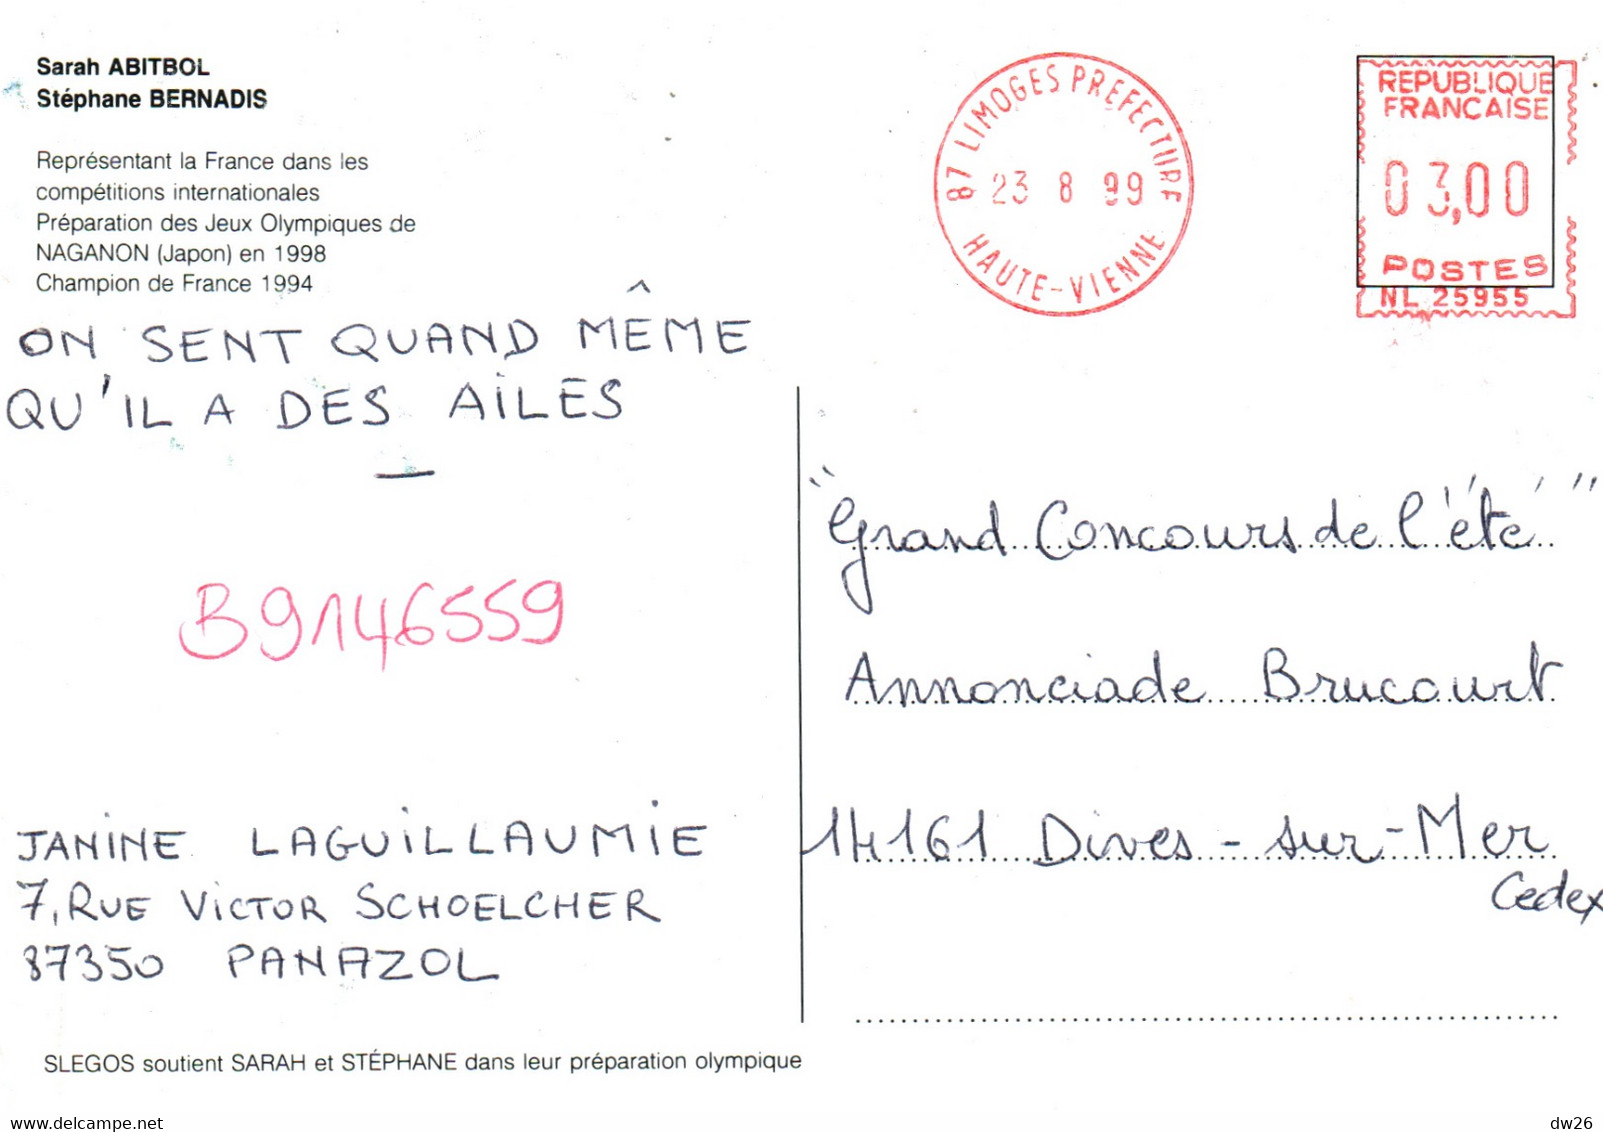 Sarah ABITBOL
Stéphane BERNADIS
Représentant la France dans les
compétitions internationales
Préparation des Jeux Olympiques de
NAGANON (Japon) en 1998
Champion de France 1994
87 LIMOGES PREFECTURE
23 8 99
HAUTE-VIENNE
REPUBLIQUE
FRANCAISE
03,00
POSTES
NL 25955
ON SENT QUAND MÊME
QU'IL A DES AILES
B9146559
"Grand Concours de l'été"
Annonciade Brucourt
14161 Dives-sur-Mer
Cedex
JANINE LAGUILLAUMIE
7, RUE VICTOR SCHOELCHER
87350 PANAZOL
SLEGOS soutient SARAH et STÉPHANE dans leur préparation olympique
www.delcampe.net
dw26